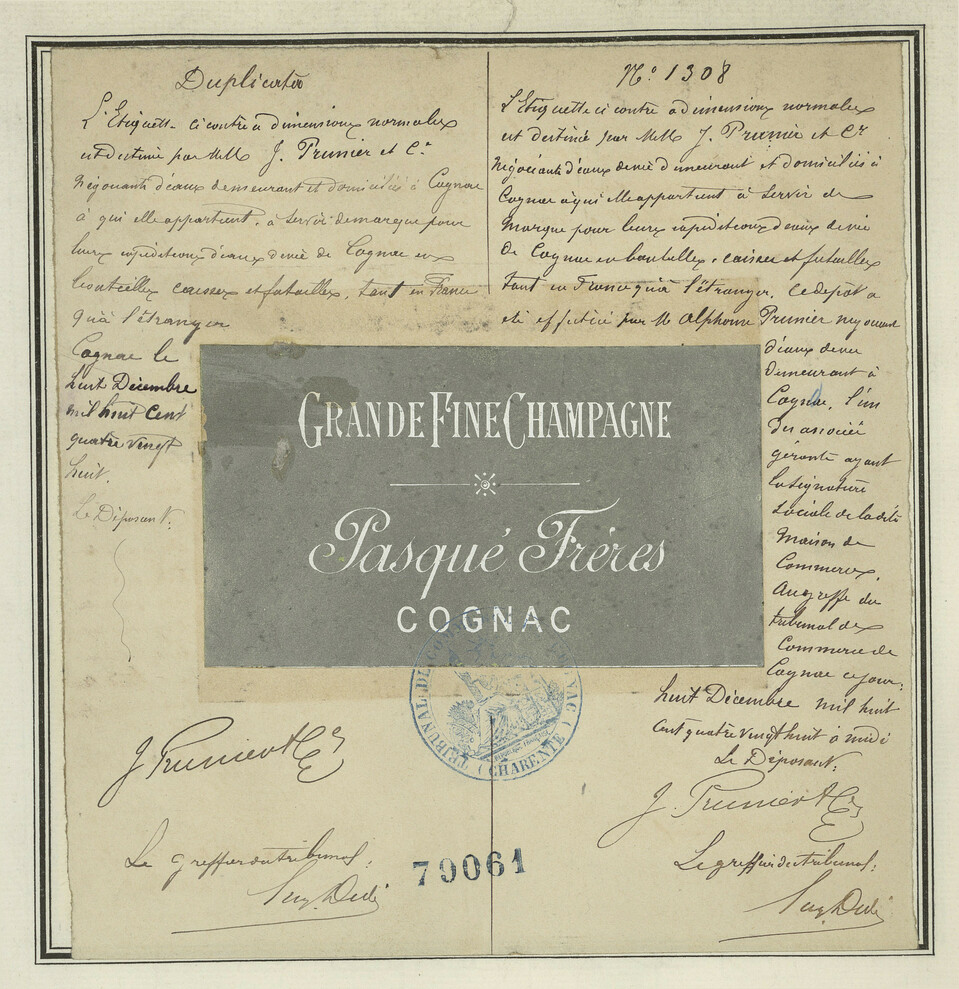 Duplicata
L'Etiquette ci contre a dimensions normales
est destinée par MM J. Prunier et Cie
Négociants d'eaux demeurant et domiciliés à Cognac
à qui elle appartient, à servir de marque pour
leurs expéditions d'eaux de vie de Cognac en
bouteilles caisses et futailles, tant en France
qu'à l'étranger
Cognac le
huit Décembre
mil huit cent
quatre vingt
huit.
Le Déposant:
J. Prunier & Cie
Le greffier du tribunal:
No 1308
L'Etiquette ci contre a dimensions normales
est destinée par MM J. Prunier et Cie
Négociants d'eaux de vie demeurant et domiciliés à
Cognac à qui elle appartient à servir de
marque pour leurs expéditions d'eaux de vie
de Cognac en bouteilles, caisses et futailles
tant en France qu'à l'étranger. Ce dépôt a
été effectué par M Alphonse Prunier négociant
d'eaux de vie
demeurant à
Cognac, l'un
des associés
gérants ayant
la signature
sociale de la dite
Maison de
Commerce,
Au greffe du
tribunal de
Commerce de
Cognac ce jour:
huit Décembre mil huit
cent quatre vingt huit à midi
Le Déposant:
J. Prunier & Cie
Le greffier du tribunal:
GRANDE FINE CHAMPAGNE
Pasqué Fréres
COGNAC
TRIBUNAL DE COGNAC (CHARENTE)
79061